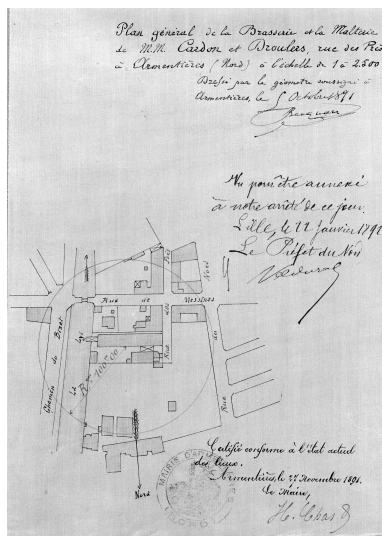 Plan général de la Brasserie et la Malterie
de M.M. Cardon et Droulers, rue des Prés
à Armentières (Nord) à l'échelle de 1 à 2.500
Dressé par le géomètre soussigné à
Armentières, le 5 Octobre 1891
Vu pour être annexé
à notre arrêté de ce jour.
Lille, le 22 Janvier 1892
Le Préfet du Nord
Rue de Messines
Rue des Prés
Rue du Nord
Chemin du Bizet
La Lys
R = 100.00
Nord
Certifié conforme à l'état actuel
des lieux.
Armentières, le 27 Novembre 1891.
Le Maire,
MAIRIE D'ARMENTIÈRES